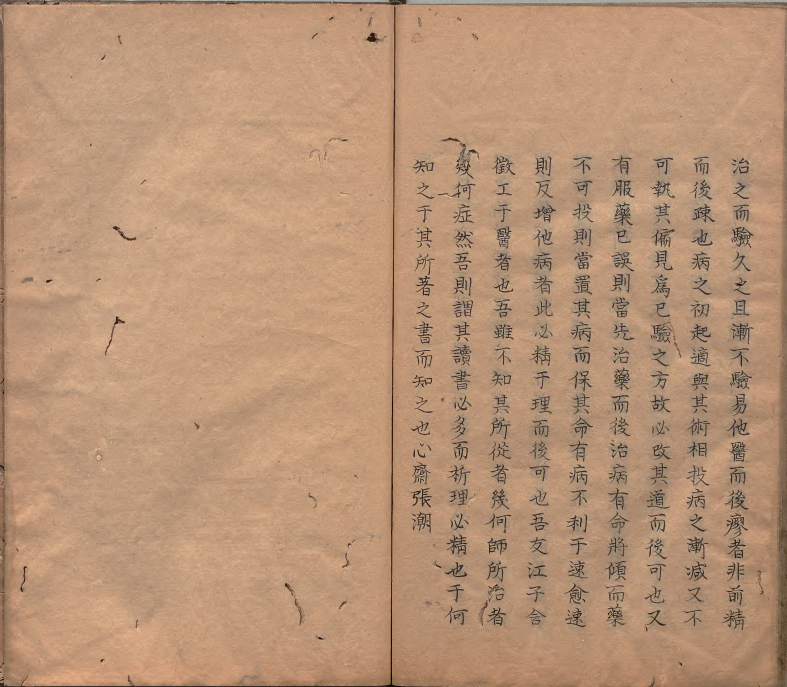 治之而驗久之且漸不驗易他醫而後瘳者非前精
而後疎也病之初起適與其術相投病之漸減又不
可執其偏見爲已驗之方故必改其道而後可也又
有服藥已誤則當先治藥而後治病有命將傾而藥
不可投則當置其病而保其命有病不利于速愈速
則反增他病者此必精于理而後可也吾友江子含
徵工于醫者也吾雖不知其所從者幾何師所治者
幾何症然吾則謂其讀書必多而析理必精也于何
知之于其所著之書而知之也心齋張潮